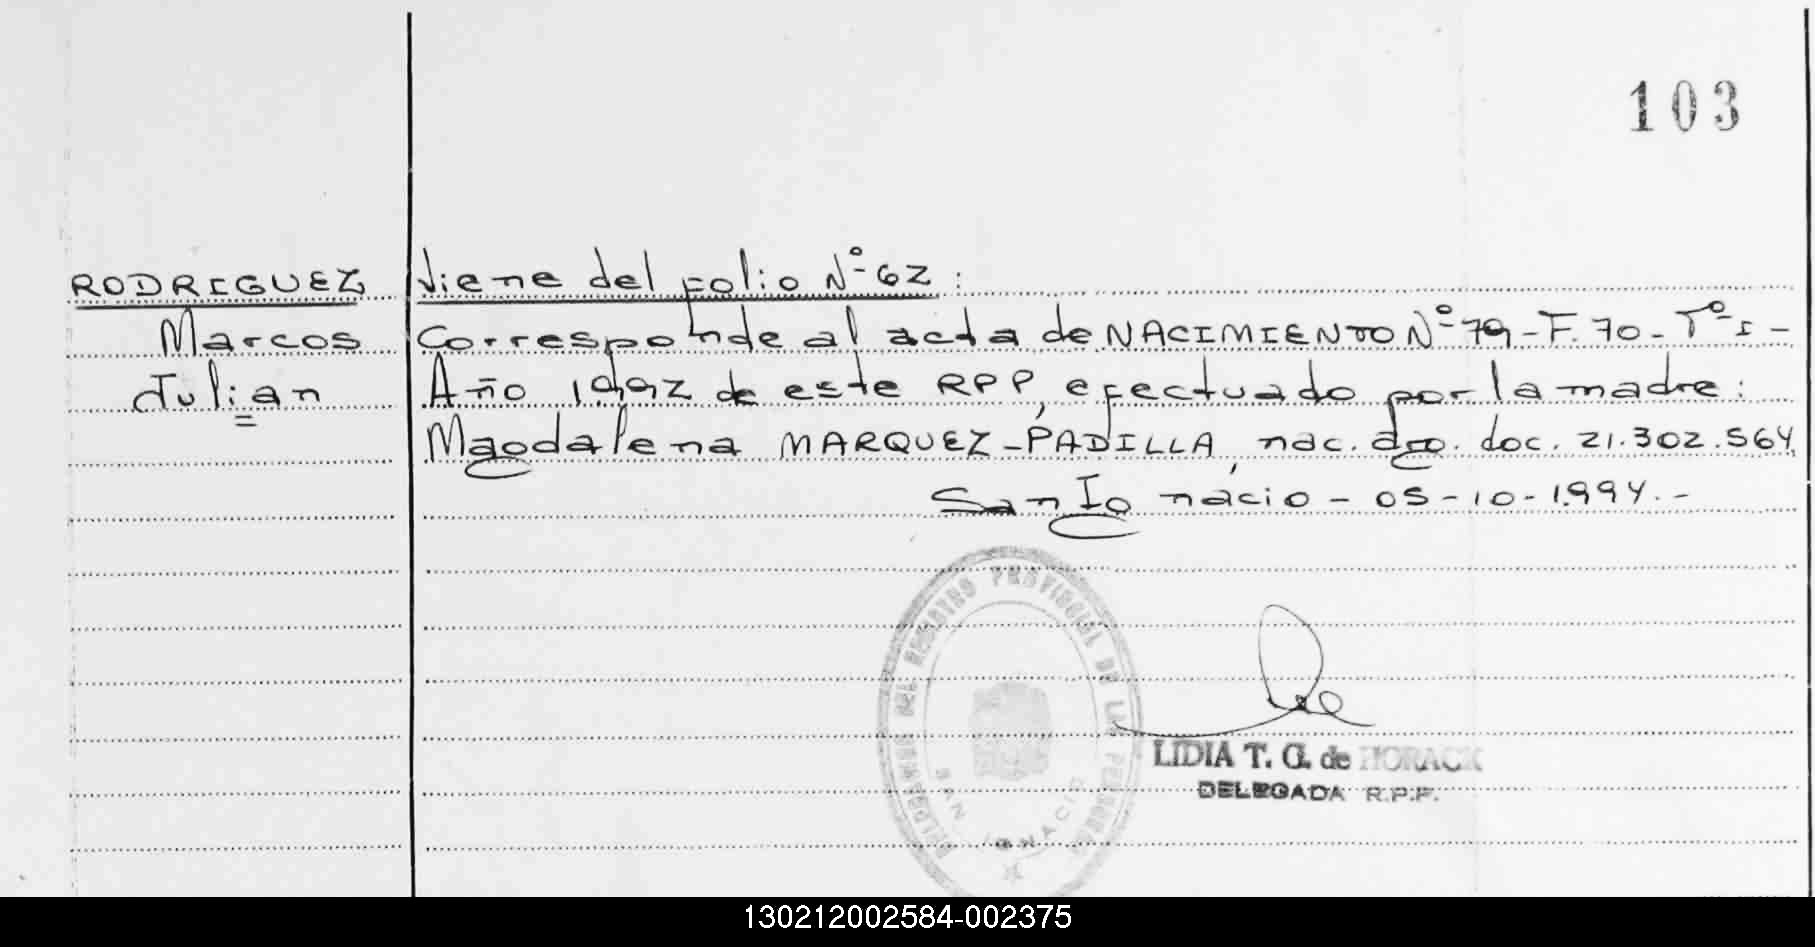 103
RODRIGUEZ Viene del folio Nº 62:
Marcos Corresponde al acta de NACIMIENTO Nº 79-F. 70- Tº I-
Julian Año 1992 de este RPP, efectuado por la madre:
Magdalena MARQUEZ-PADILLA, nac. arg. doc. 21.302.564,
San Ignacio - 05-10-1994.-
DEL REGISTRO PROVINCIAL DE LAS PERSONAS
SAN IGNACIO
LIDIA T. G. de HORACK
DELEGADA R.P.P.
130212002584-002375